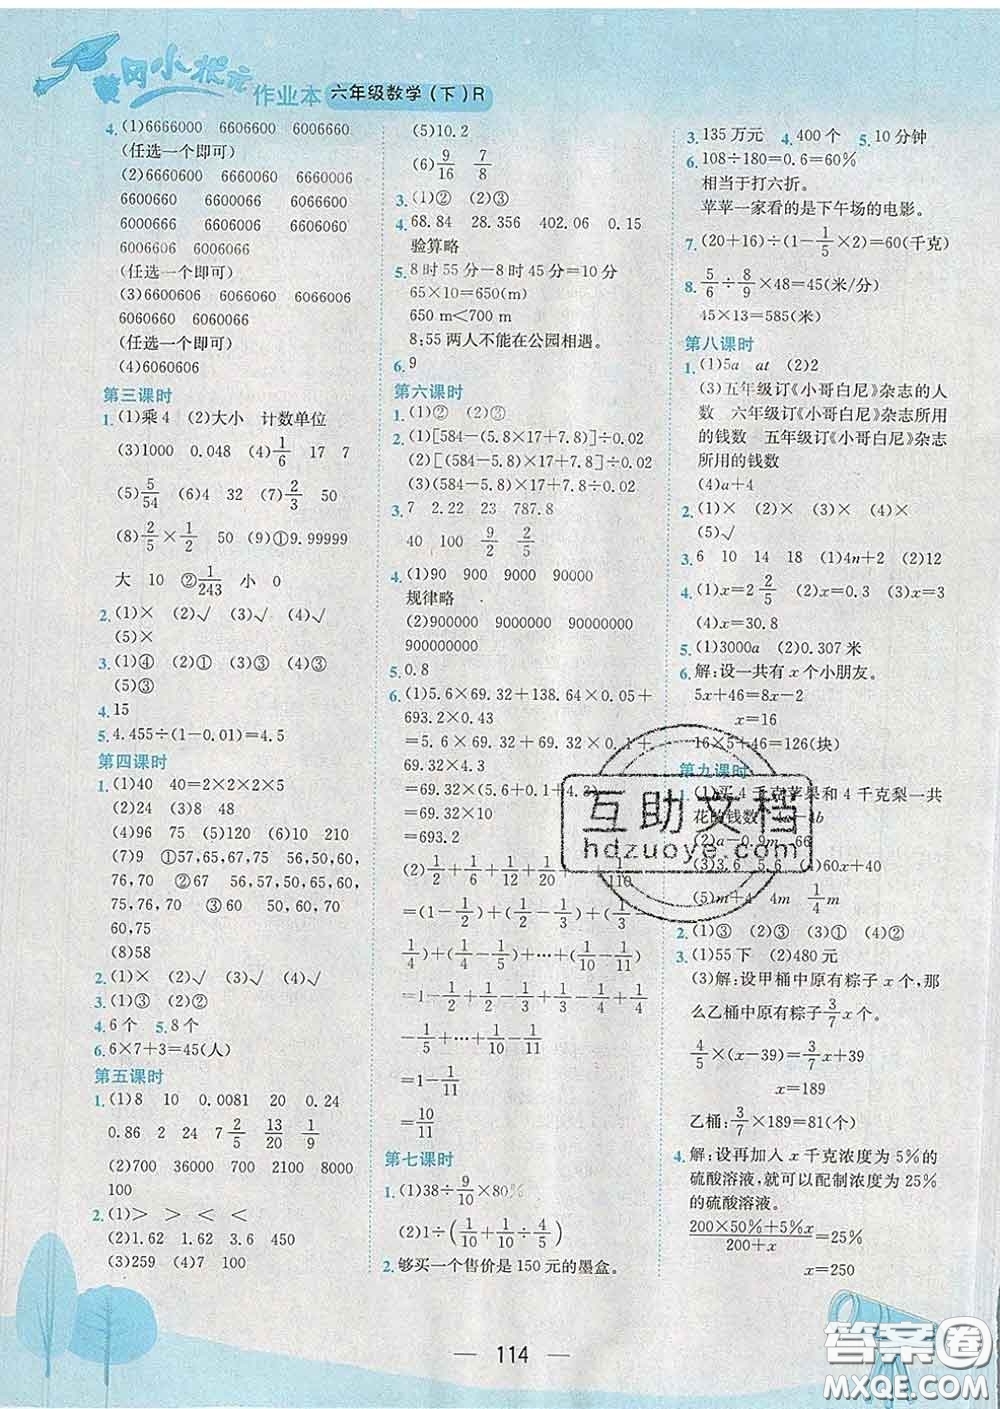 黄冈小状元
作业本 六年级数学(下)R
4. (1)6666000 6606600 6600660
(任选一个即可)
(2)6660600 6660060 6660006
6606600 6600066 6066600
6006660 6000666 6066060
6006606 6006066
(任选一个即可)
(3)6600606 6060606 6006606
6060660 6060066
(任选一个即可)
(4)6060606
第三课时
1. (1)乘4 (2)大小 计数单位
(3)1000 0.048 (4)1/6 17 7
(5)5/54 (6)4 32 (7)2/3 50
(8)2/5×1/2 50 (9)①9.99999
大 10 ②1/243 小 0
2. (1)× (2)√ (3)√ (4)√
(5)×
3. (1)④ (2)① (3)③ (4)③
(5)③
4. 15
5. 4.455÷(1-0.01)=4.5
第四课时
1. (1)40 40=2×2×2×5
(2)24 (3)8 48
(4)96 (5)120 (6)2
(7)9 ①57,65,67,75 56,60,
76,70 ②56,57,50,65,60,
67,75,76,70 ③60,50,70
60,75
(8)58
2. (1)× (2)√ (3)√ (4)×
3. (1)③ (2)②
4. 6个 5. 8个
6. 6×7+3=45(人)
第五课时
1. (1)8 10 0.0081 20 0.24
0.86 2 24 7 2/5 13/20 1/9
(2)707 36000 8 19 116
100
2. (1)> > < <
(2)1.62 1.62 3.6 450
(3)259 (4)7 100
(5)10.2
(6)9/16 7/8
3. (1)② (2)③
4. 68.84 28.356 402.06 0.15
验算略
5. 8时55分-8时45分=10分
65×10=650(m)
650 m<700 m
8:55两人不能在公园相遇。
6. 9
第六课时
1. (1)② (2)③
2. (1)[584-(5.8×17+7.8)]÷0.02
(2)[(584-5.8)×17+7.8]÷0.02
(3)(584-5.8)×17+7.8÷0.02
3. 7 2.22 23 787.8
40 100 9/2 2/5
4. (1)90 900 9000 90000
规律略
(2)900000 9000000 90000000
900000000
5. 0.8
6. (1)5.6×69.32+138.64×0.05+
693.2×0.43
=5.6×69.32+69.32×0.1+
69.32×4.3
=69.32×(5.6+0.1+4.3)
=69.32×10
=693.2
(2)1/2+1/6+1/12+1/20+…+1/110
=(1-1/2)+(1/2-1/3)+(1/3-
1/4)+(1/4-1/5)+…+(1/10-1/11)
=1-1/2+1/2-1/3+1/3-1/4+1/4
-1/5+…+1/10-1/11
=1-1/11
=10/11
第七课时
1. (1)38÷9/10×80%
(2)1÷(1/10+1/10÷4/5)
2. 够买一个售价是150元的墨盒。
3. 135万元 4. 400个 5. 10分钟
6. 108÷180=0.6=60%
相当于打六折。
苹苹一家看的是下午场的电影。
7. (20+16)÷(1-1/5×2)=60(千克)
8. 5/6÷8/9×48=45(米/分)
45×13=585(米)
第八课时
1. (1)5a at (2)2
(3)五年级订《小哥白尼》杂志的人
数 六年级订《小哥白尼》杂志所用
的钱数 五年级订《小哥白尼》杂志
所用的钱数
(4)a+4
2. (1)× (2)× (3)× (4)×
(5)√
3. 6 10 14 18 (1)4n+2 (2)12
4. (1)x=2 2/5 (2)x=0.3 (3)x=3
(4)x=30.8
5. (1)3000a (2)0.307米
6. 解:设一共有x个小朋友。
5x+46=8x-2
x=16
16×5+46=126(块)
第九课时
1. (1)买4千克苹果和4千克梨一共
花的钱数 4a-4b
(2)a-0.9m 66
(3)3.6 5.6 (4)60x+40
(5)m+4 4m 1/4m
2. (1)③ (2)① (3)③ (4)②
3. (1)55下 (2)480元
(3)解:设甲桶中原有粽子x个,那
么乙桶中原有粽子3/7x个。
4/5×(x-39)=3/7x+39
x=189
乙桶:3/7×189=81(个)
4. 解:设再加入x千克浓度为5%的
硫酸溶液,就可以配制浓度为25%
的硫酸溶液。
200×50%+5%x/200+x=25%
x=250
互助文档
hdzuoye.com
114
答案圈
MXQE.COM